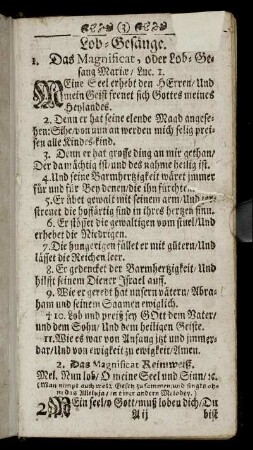 ( 3 )
Lob-Gesänge.
1. Das Magnificat, oder Lob-Ge-
sang Mariæ, Luc. 1.
MEine Seel erhebt den HErren/ Und
mein Geist freuet sich Gottes meines
Heylandes.
2. Denn er hat seine elende Magd angese-
hen: Sihe/ von nun an werden mich selig prei-
sen alle Kindes-kind.
3. Denn er hat grosse ding an mir gethan/
Der da mächtig ist/ und des nahme heilig ist.
4. Und seine Barmhertzigkeit wäret immer
für und für Bey denen/ die ihn fürchten.
5. Er übet gewalt mit seinem arm/ Und zer-
streuet die hoffärtig sind in ihres hertzen sinn.
6. Er stösset die gewaltigen vom stuel/ Und
erhebet die Niedrigen.
7. Die hungerigen füllet er mit gütern/ Und
lässet die Reichen leer.
8. Er gedencket der Barmhertzigkeit/ Und
hilfft seinem Diener Israel auff.
9. Wie er geredt hat unsern vätern/ Abra-
ham und seinem Saamen ewiglich.
† 10. Lob und preiß sey GOtt dem Vater/
und dem Sohn/ Und dem heiligen Geiste.
11. Wie es war von Anfang itzt und immer-
dar/ Und von ewigkeit zu ewigkeit/ Amen.
2. Das Magnificat Reinweiß.
Mel. Nun lob/ O meine Seel und Sinn/ ꝛc.
(Man nimpt auch wohl Gesetz zusammen, und singts oh-
ne das Alleluja, in einer andern Melodey.)
MEin seel/ o Gott/ muß loben dich/ Du
A ij bist